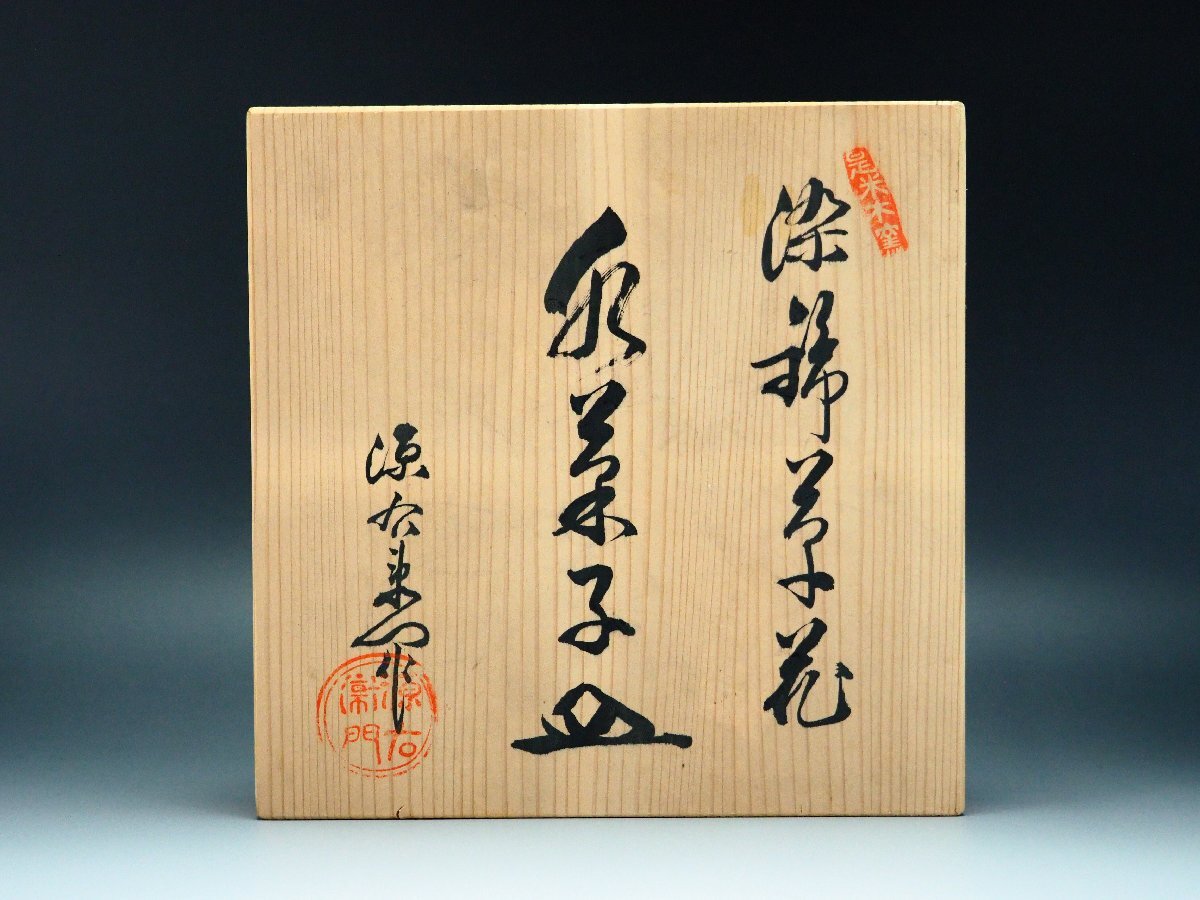 是米木窯
染錦草花
水菓子皿
源右衛門作
源右衛門